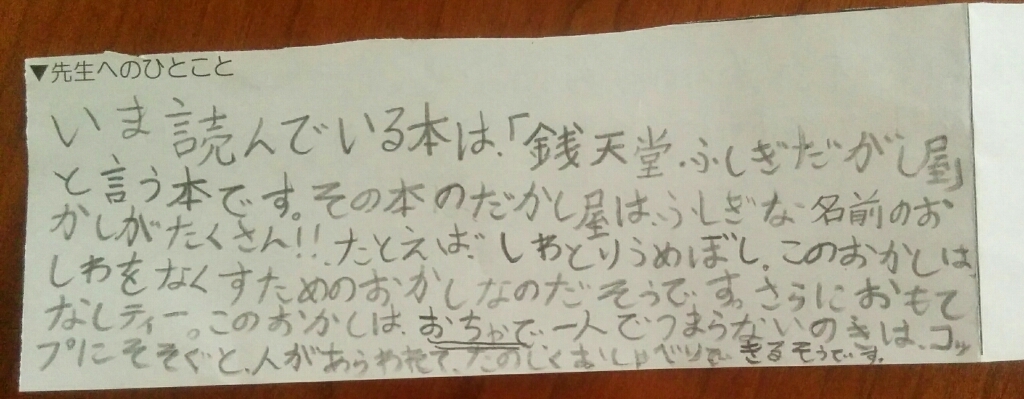 ▼先生へのひとこと
いま読んでいる本は、「銭天堂・ふしぎだがし屋」
と言う本です。その本のだがし屋は、ふしぎな名前のお
かしがたくさん!!.たとえば、しわとりうめぼし。このおかしは、
しわをなくすためのおかしなのだそうです。さらにおもて
なしティー。このおかしは、おちゃで、一人でつまらないのきは、コッ
プにそそぐと、人があらわれて、たのしくおしゃべりできるそうです。